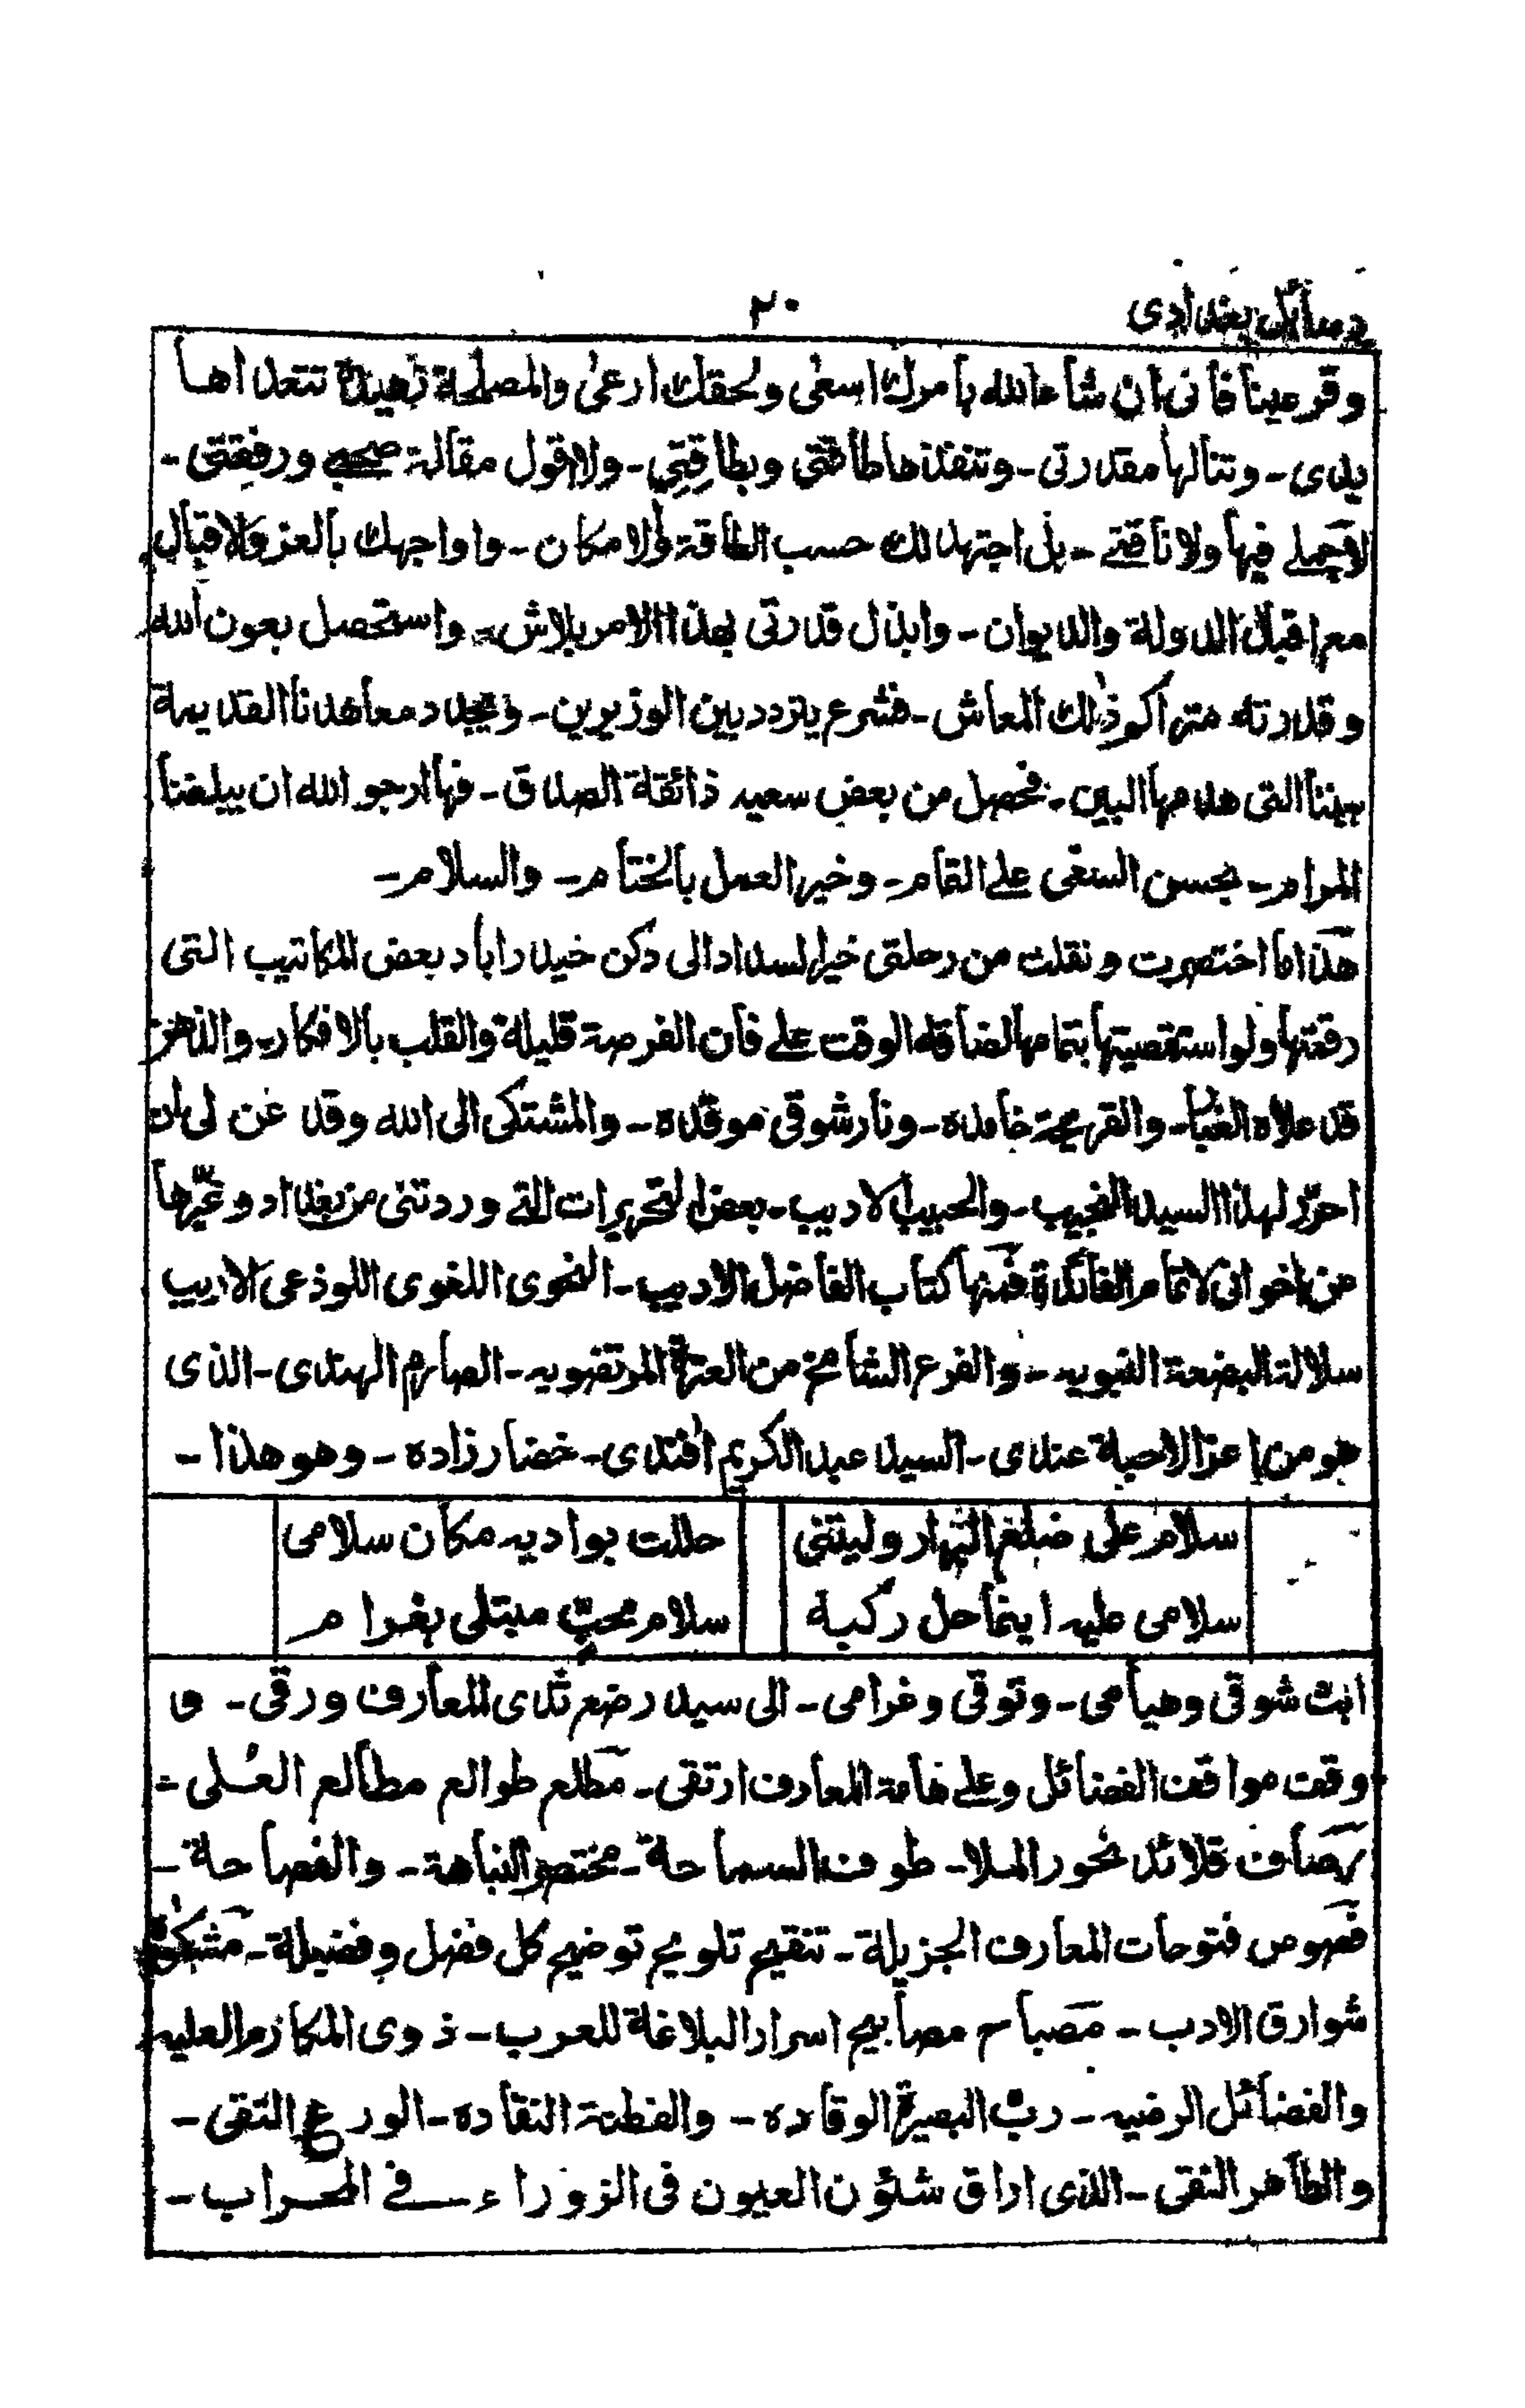 رسائل بغدادی
٢٠
وقر عينا فانى ان شاء الله بامرك اسعى ولحقك ارعى والمصلحة تتعداها
يدى - وتنالها مقدرتى - وتنفذها طاقتى وبطاقتِى - ولا اقول مقالة صحبى ورفقتى -
لا جملى فيها ولا ناقتے - بل اجتهد لك حسب الطاقة والامكان - واواجهك بالعز والاقبال
مع اقبال الدولة والديوان - وابذل قدرتى بهذا الامر بلاش - واستحصل بعون الله
وقدرته متراكم ذلك المعاش - فشرع يتردد بين الوزيرين - ويجدد معاهدنا القديمة
بيننا التى هدمها البين - فحصل من بعض سعيه ذائقة الصداق - فها ارجو الله ان يبلغنا
المرام - بحسن السعى على التمام - وخير العمل بالختام - والسلام -
هذا ما اختصرت ونقلت من رحلتى خير السداد الى دكن حيدراباد بعض المكاتيب التى
رقعتها ولو استقصيتها بتمامها لضاق الوقت على فان الفرصة قليلة والقلب بالافكار - والذهن
قد علاه الغبا - والقريحة خامده - ونار شوقى موقده - والمشتكى الى الله وقد عن لى ان
احرّر لهذا السيد النجيب - والحبيب الاديب - بعض التحريرات التے وردتنى من بغداد وغيرها
من اخوانى لاتمام الفائدة فمنها كتاب الفاضل الاديب - النحوى اللغوى اللوذعى الاريب
سلالة البضعة النبويه - والفرع الشامخ من العترة المرتضويه - الصارم الهندى - الذى
هو من اعز الاحبة عندى - السيد عبد الكريم افندى - خضار زاده - وهو هذا -
سلام على النهار وليتنى حللت بواديه مكان سلامى
سلامى عليه اينما حل ركبه سلام محبٍّ مبتلى بغرام
ابث شوقى وهيامى - وتوقى وغرامى - الى سيد رضع ثدى المعارف ورقى - و
وقت مواقف الفضائل وعلى هامة المعارف ارتقى - مطلع طوالع مطالع العُلى -
رصاف قلائد نحور الملا - طوف السماحة - مختصر النباهة - والفصاحة -
فصوص فتوحات المعارف الجزيلة - تنقيح تلويح توضيح كل فضل وفضيلة - مشكوة
شوارق الادب - مصباح مصابيح اسرار البلاغة للعرب - ذوى المكارم العليه
والفضائل الرضيه - ربّ البصيرة الوقاده - والفطنة النقاده - الورع التقى -
والطاهر النقى - الذى اراق شئون العيون فى الزوراء فے المحراب -